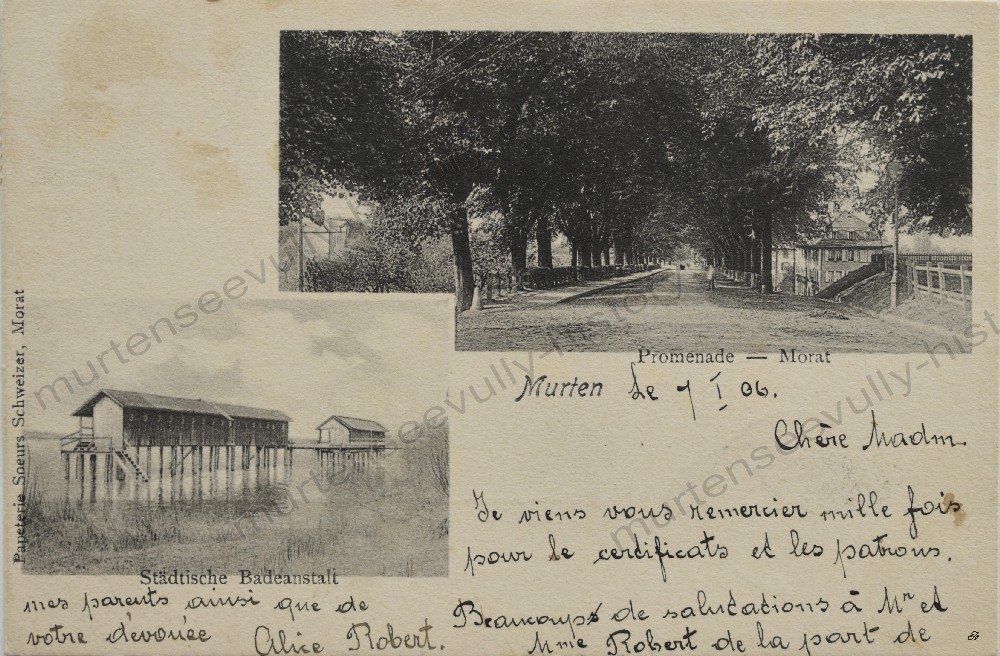 Papeterie Soeurs Schweizer, Morat
Promenade — Morat
Städtische Badeanstalt
Murten Le 7 I 06.
Chère Madm.
Je viens vous remercier mille fois
pour le certificats et les patrons.
Beaucoups de salutations à Mr et
Mme Robert de la part de
mes parents ainsi que de
votre dévouée Alice Robert.
murtenseevully-histo
murtenseevully-histo
murtenseevully-hist